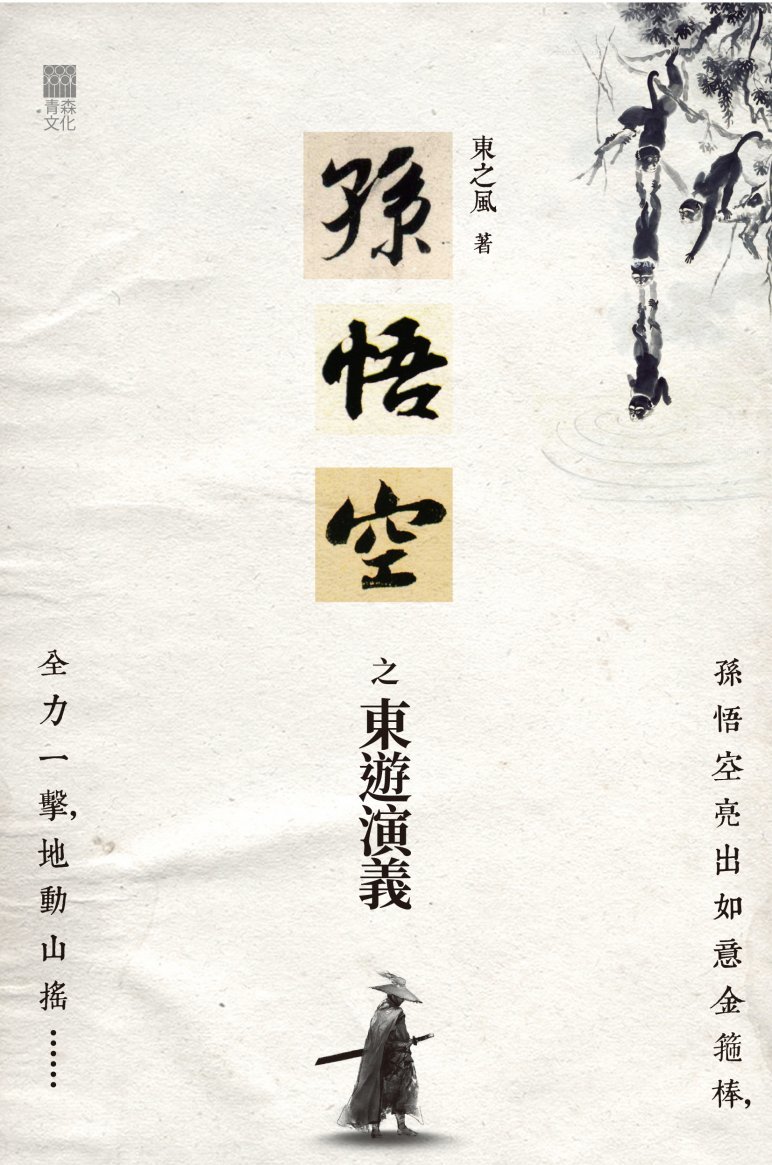 青森
文化
東之風 著
孫悟空
之東遊演義
孫悟空亮出如意金箍棒,
全力一擊,地動山搖……